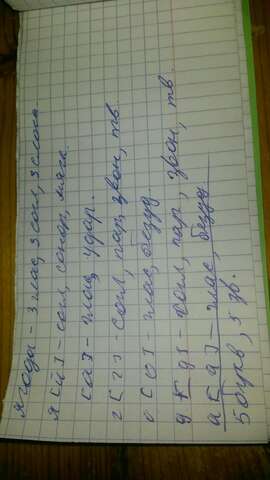 ягоды - 3 глас, 3 согл, 3 слога
я [й] - согл, сонор, мягк.
[а] - глас, удар.
г [г] - согл, пар, звон, тв.
о [о] глас, безуд
д [д] - согл, пар, звон, тв.
а [а] - глас, безуд
5 букв, 5 зв.